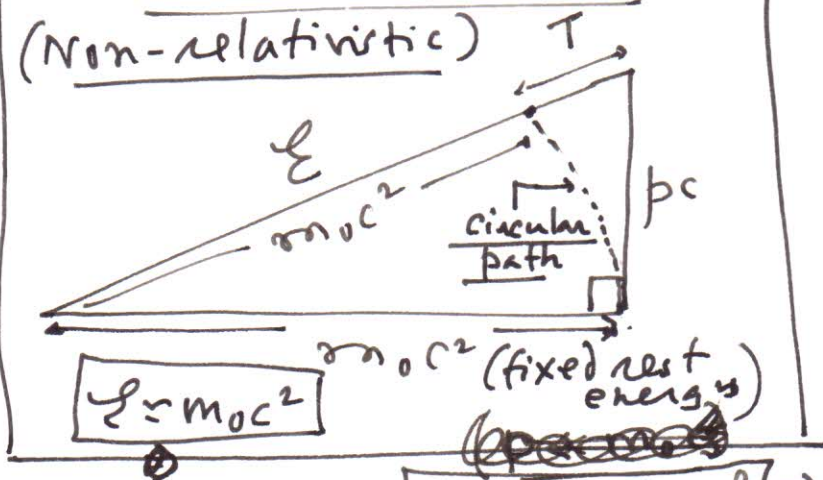 (Non-relativistic)
T
ℰ
m₀c²
pc
circular
path
m₀c² (fixed rest
energy)
ℰ ≃ m₀c²